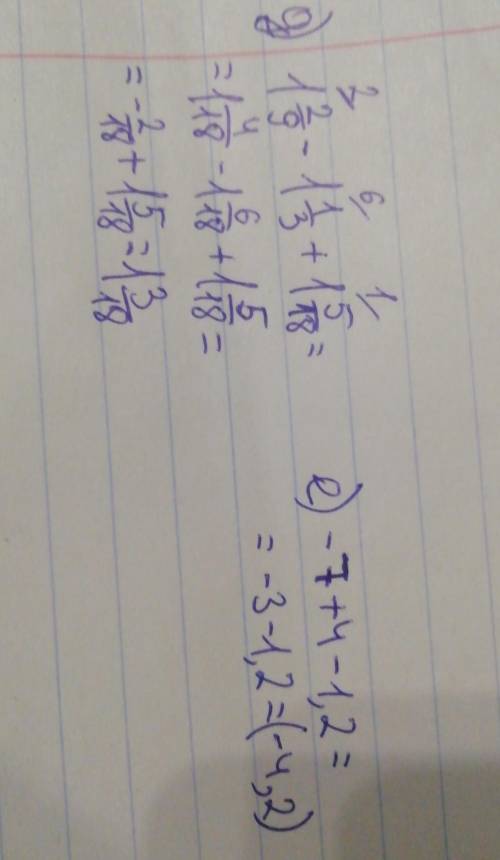 д) 1 2/9 - 1 1/3 + 1 5/18 =
= 1 4/18 - 1 6/18 + 1 5/18 =
= -2/18 + 1 5/18 = 1 3/18
е) -7 + 4 - 1,2 =
= -3 - 1,2 = (-4,2)